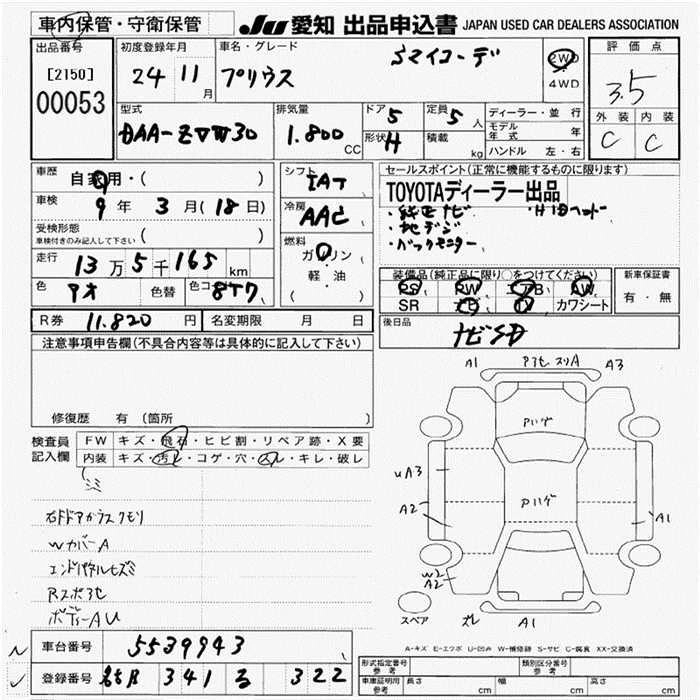 車内保管・守衛保管
JU 愛知 出品申込書 JAPAN USED CAR DEALERS ASSOCIATION
出品番号
[2150]
00053
初度登録年月
24 11 月
車名・グレード
プリウス
Sマイコーデ
2WD
4WD
評価点
3.5
外装 内装
C C
型式
DAA-ZVW30
排気量
1.800 CC
ドア 5
形状 H
定員 5 人
積載 kg
ディーラー・並行
モデル年式 年
ハンドル 左・右
車歴
自家用・( )
車検
9 年 3 月 (18 日)
受検形態
車検付きのみ記入して下さい ( )
走行
13 万 5 千 165 km
色 アオ 色替 色コード 8T7
シフト
IAT
冷房
AAC
燃料
ガソリン
・
軽・油
( )
セールスポイント(正常に機能するものに限ります)
TOYOTAディーラー出品
・純正ナビ ・HIDヘッド
・地デジ
・バックモニター
装備品(純正品に限り○をつけてください)
PS PW エアB AW
SR ナビ TV カワシート
新車保証書
有・無
後日品
ナビSD
R券 11.820 円 名変期限 月 日
注意事項申告欄(不具合内容等は具体的に記入して下さい)
修復歴 有 (箇所 )
検査員記入欄
FW キズ・飛石・ヒビ割・リペア跡・X要
内装 キズ・汚レ・コゲ・穴・スレ・キレ・破レ
シミ
右ドアガラスクモリ
WカバーA
エンドパネルヒズミ
Rスポ3セ
ボディーAU
A1 アフセ スリA A3
Pハゲ
Pハゲ
UA3
A2
A1
W2
A2
スペア
ズレ A1
A-キズ E-エクボ U-凹み W-補修跡 S-サビ C-腐食 XX-交換済
車台番号 5539943
登録番号 名古屋 341 る 322
形式指定番号 参考
類別区分番号 参考
車庫証明用 参考 長さ cm 幅 cm 高さ cm